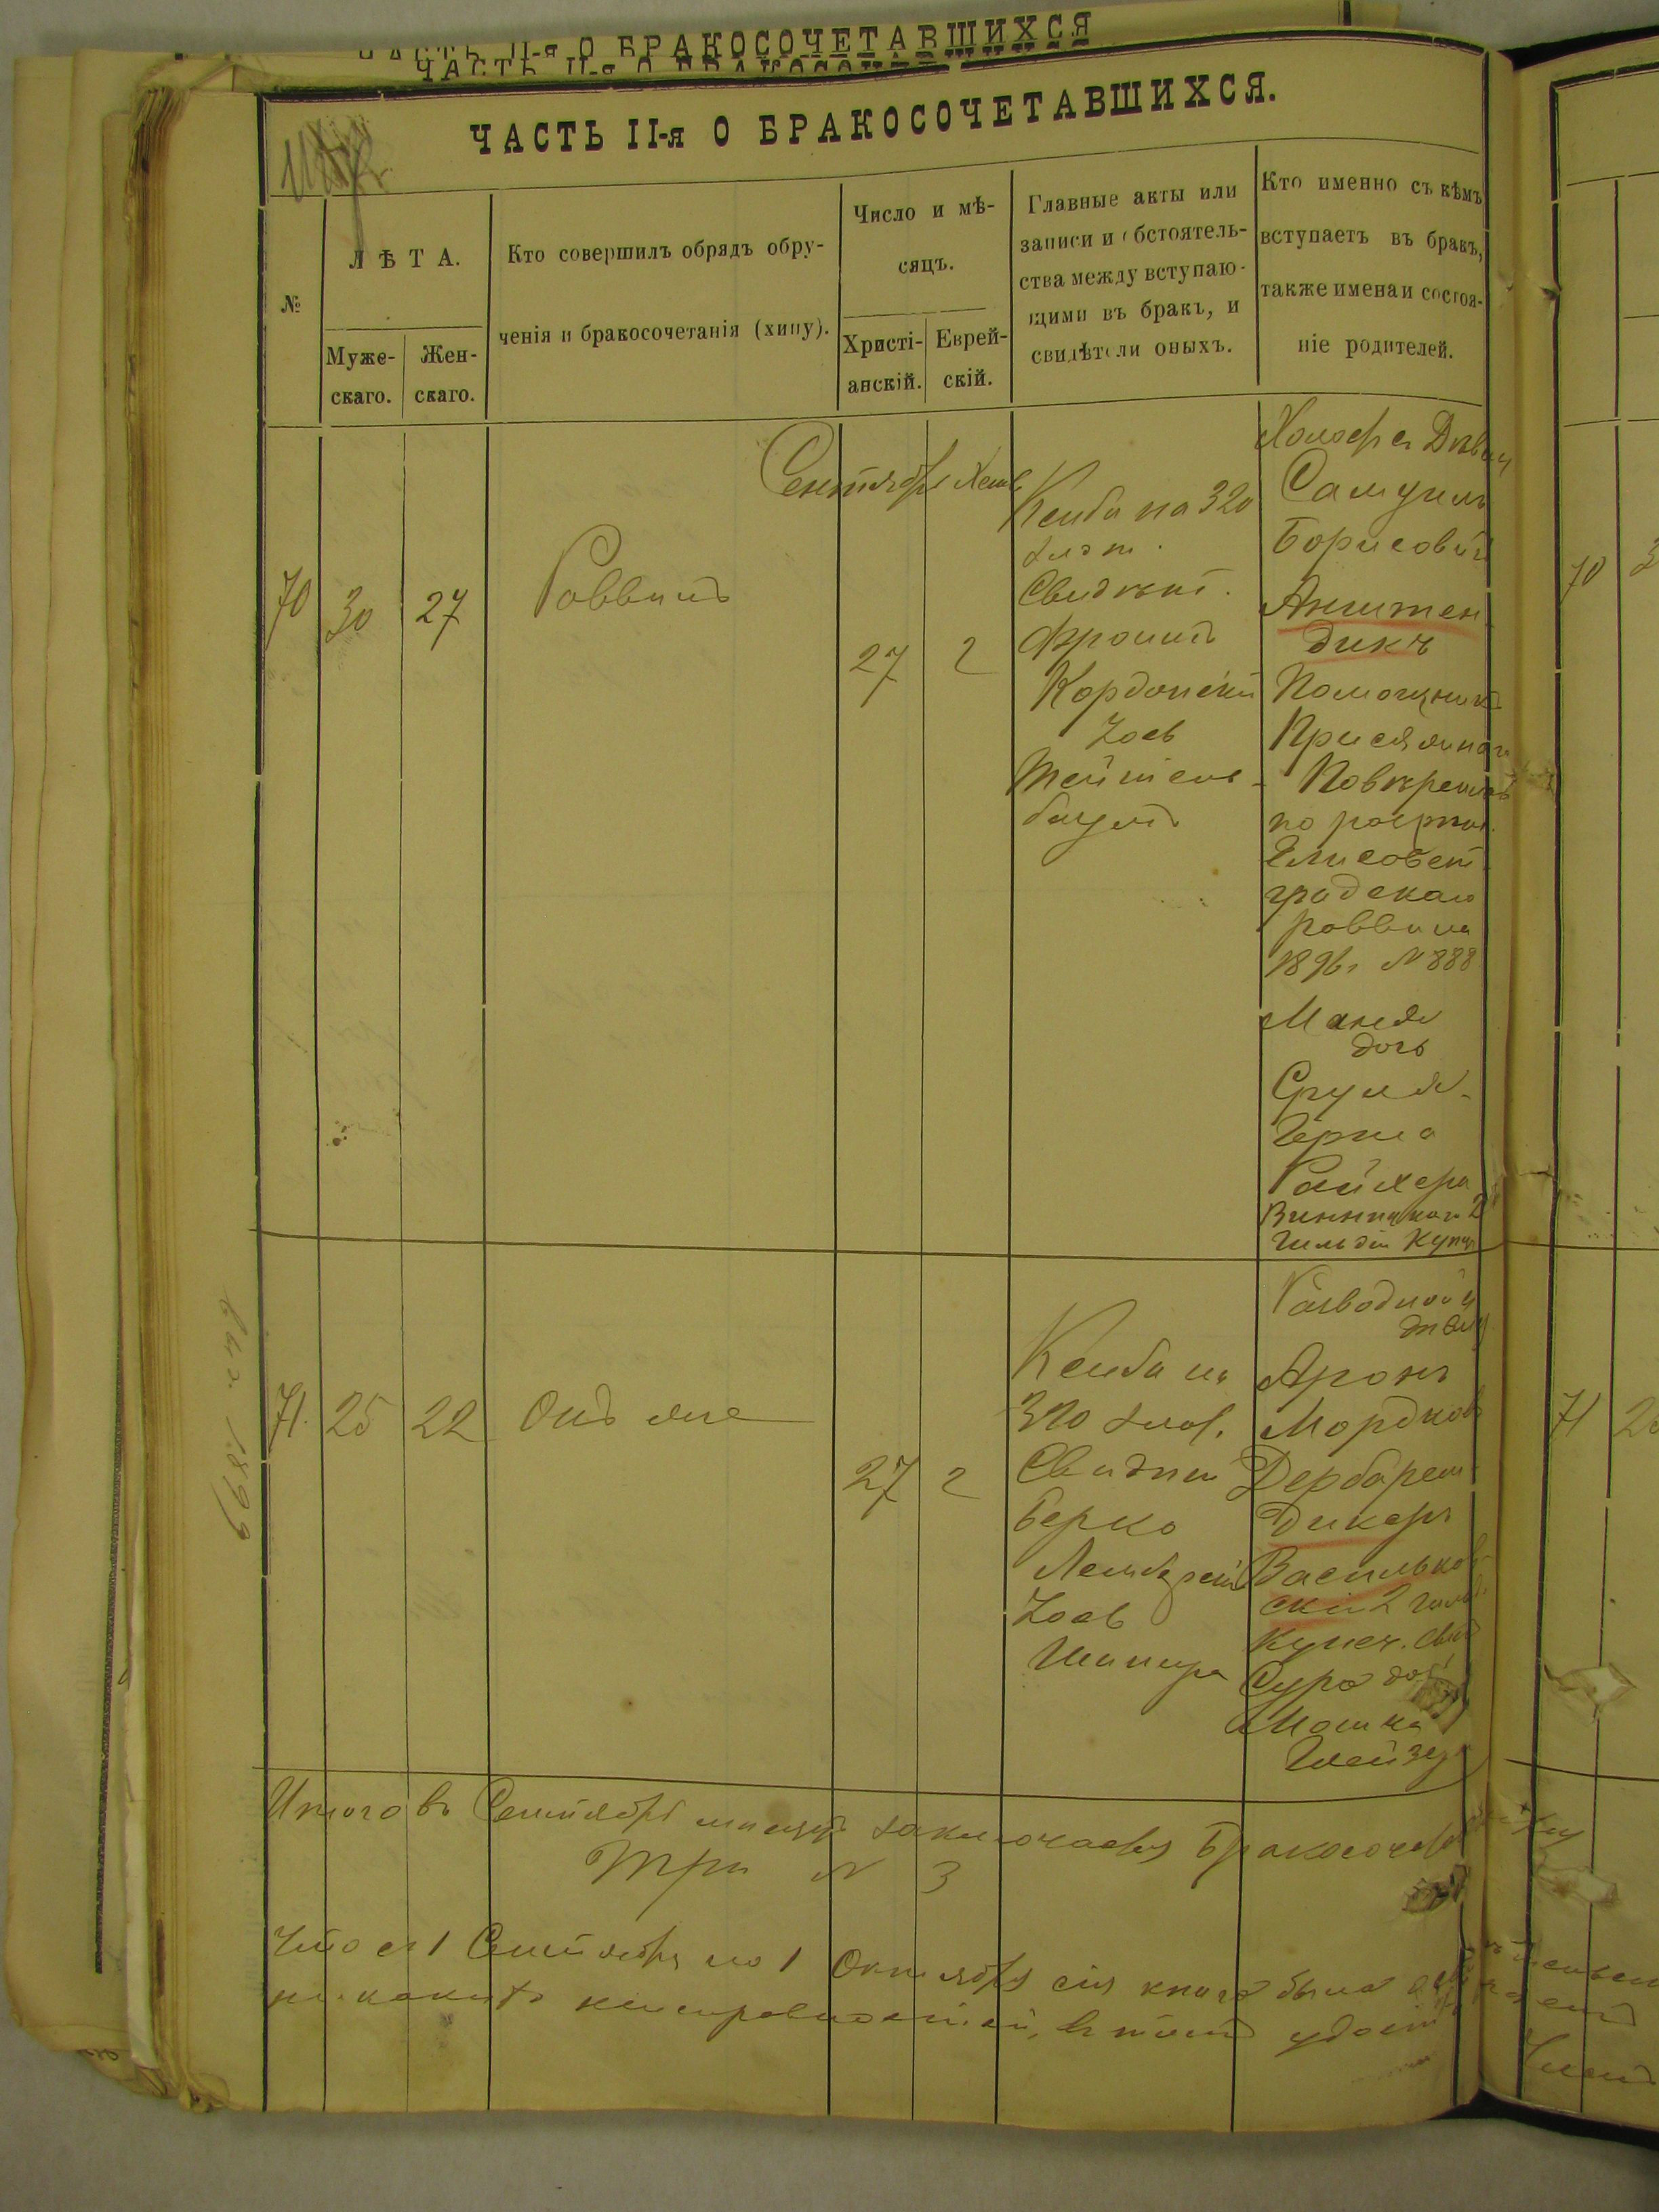 ЧАСТЬ II-я О БРАКОСОЧЕТАВШИХСЯ
ЧАСТЬ II-я О БРАКОСОЧЕТАВШИХСЯ.
№
ЛѢТА.
Муже-
скаго.
Жен-
скаго.
Кто совершилъ обрядъ обру-
ченія и бракосочетанія (хипу).
Число и мѣ-
сяцъ.
Христі-
анскій.
Еврей-
скій.
Главные акты или
записи и обстоятель-
ства между вступаю-
щими въ бракъ, и
свидѣтели оныхъ.
Кто именно съ кѣмъ
вступаетъ въ бракъ,
также имена и состоя-
ніе родителей.
Сентябрь
70
30
27
Раввинъ
27
2
Ктуба на 320
злот.
Свидѣт.
Фроимъ
Кордонскій
Іось
Тейтель-
баумъ
Самуилъ
Борисовичъ
Анштен
дикъ
Помощникъ
Присяжнаго
Повѣреннаго
Елисовет
градскаго
раввина
1896 г № 888
Маня
дочь
Сруля-
Герша
Райхера
Винницкаго 2
Гильдіи Купца
71.
25
22
Онъ же
27
2
Ктуба на
320 злот.
Свидѣт
Берко
Іось
Шапира
Разводной
Аронъ
Мордков
Дербарем-
дикеръ
Васильков-
скій 2 гильд.
купеч. сынъ
Сура доч
Мошка
Глейзер
Итого въ Сентябрѣ мѣсяцѣ заключается Бракосочет
Три № 3
Что съ 1 Сентября по 1 Октября сія книга была
никакихъ неисправностей, въ томъ удост
70
71
1899